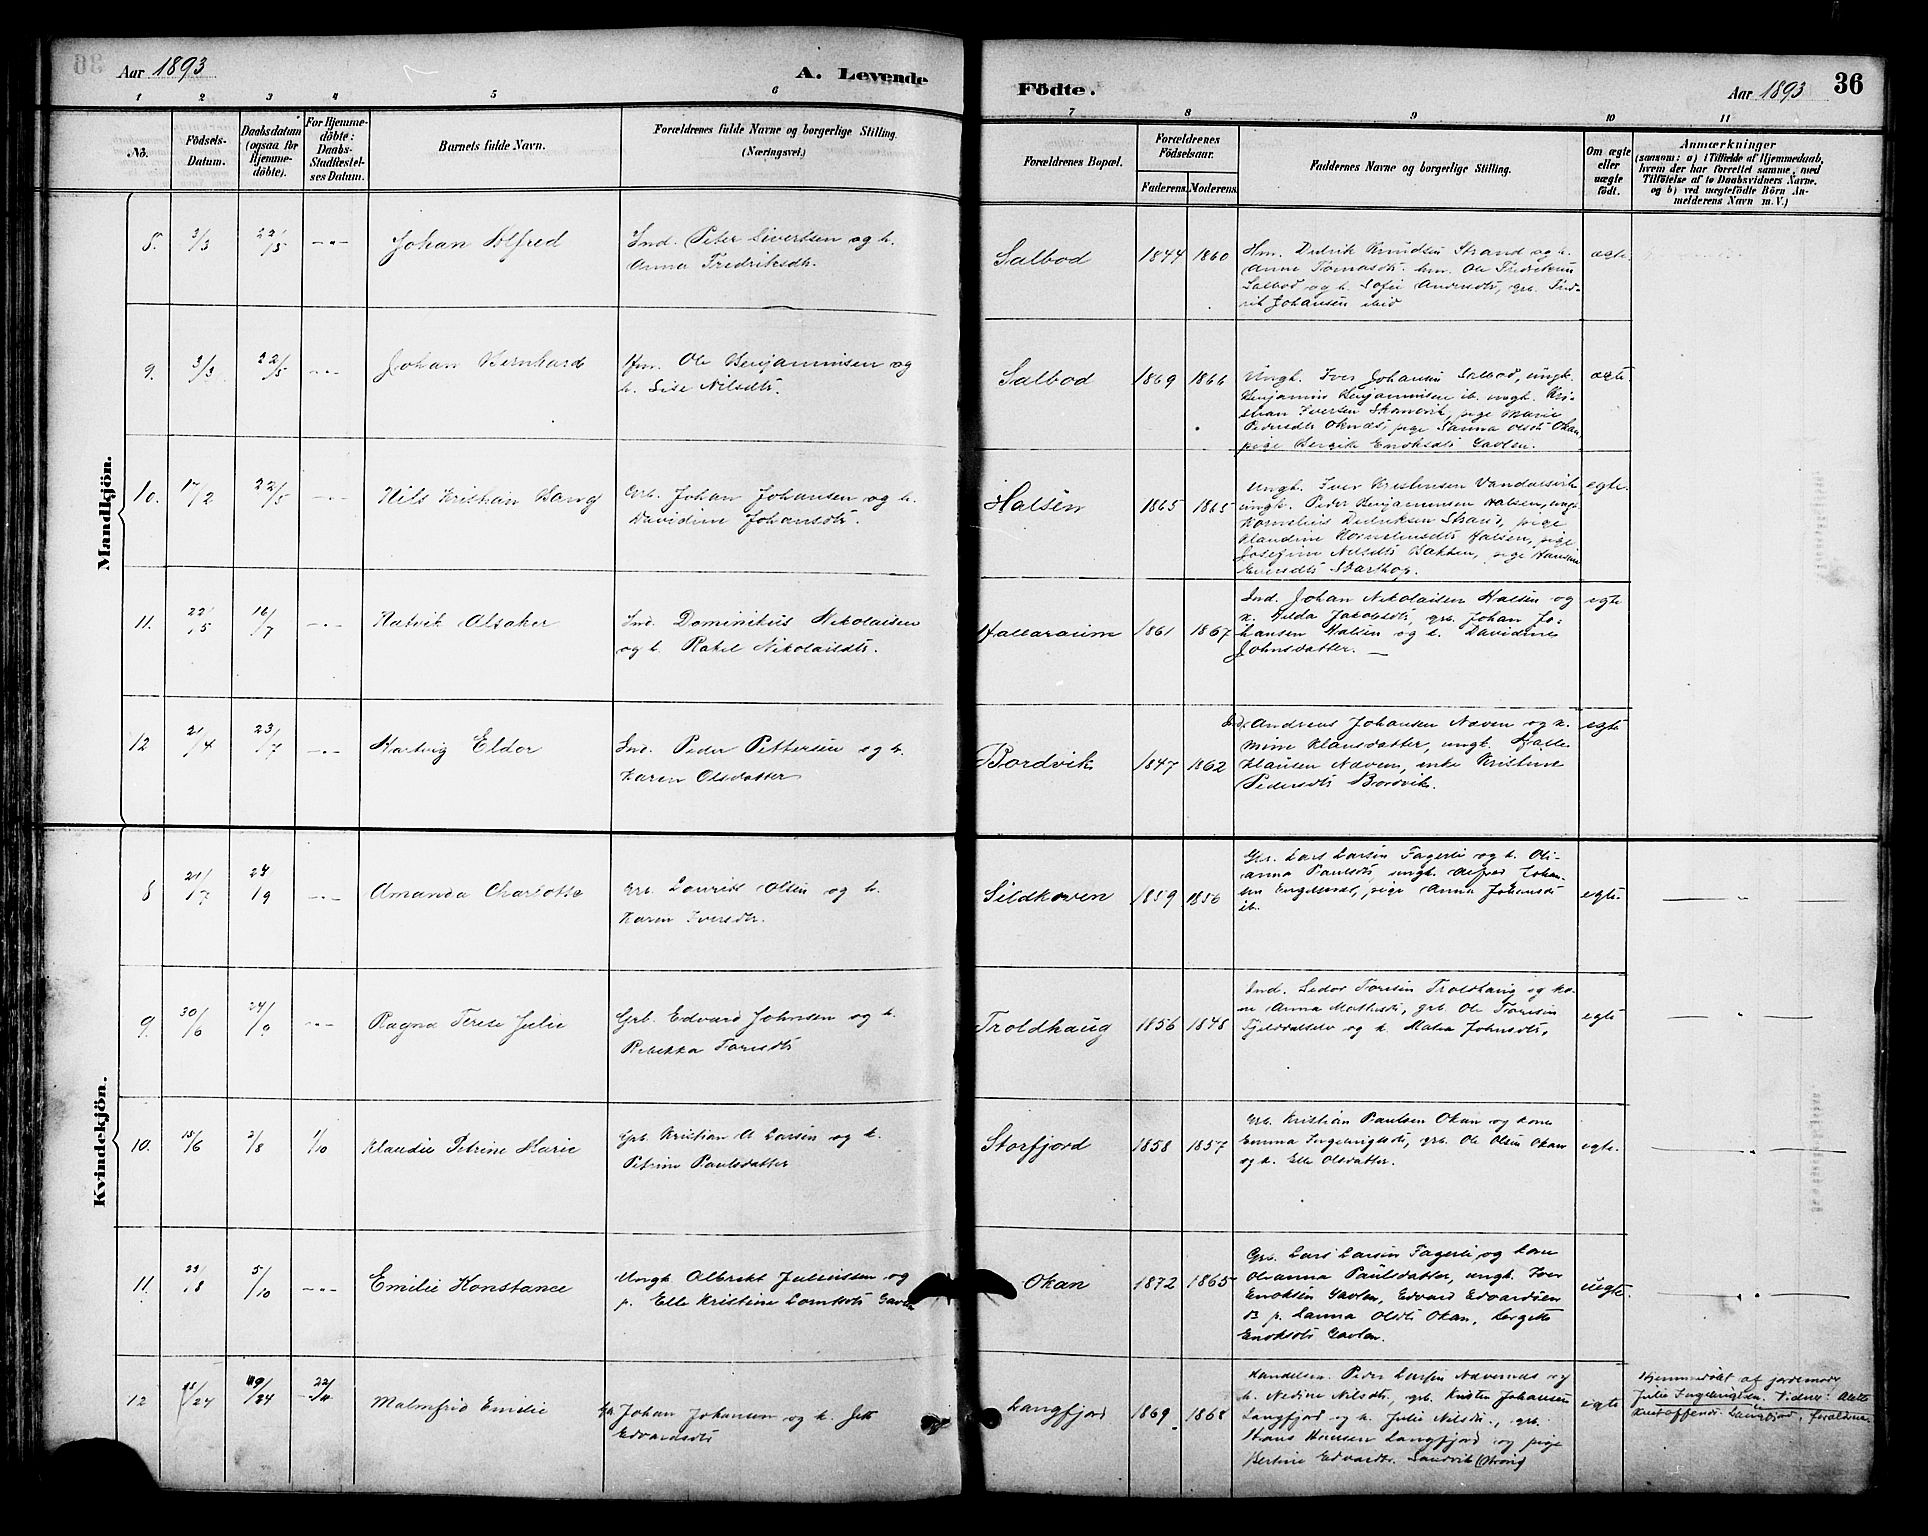 Aar 1893
A. Levende
Födte.
Aar 1893
36
1 2 3 4 5 6 7 8 9 10 11
No.
Födsels-
Datum.
Daabsdatum
(ogsaa for
Hjemme-
döbte).
For Hjemme-
döbte:
Daabs-
Stadfæstel-
ses Datum.
Barnets fulde Navn.
Forældrenes fulde Navne og borgerlige Stilling.
(Næringsvei.)
Forældrenes Bopæl.
Forældrenes
Födselsaar.
Faderens.
Moderens.
Faddernes Navne og borgerlige Stilling.
Om ægte
eller
uægte
födt.
Anmærkninger
(saasom: a) i Tilfælde af Hjemmedaab,
hvem der har forrettet samme, med
Tilföielse af to Daabsvidners Navne,
og b) ved uægtefödte Börn An-
melderens Navn m. V.)
Mandkjön.
8. 3/3 22/5 -"- Johan Alfred
Ind. Peter Sivertsen og h.
Anna Fredriksdtr.
Salbod 1844 1860
Hm. Didrik Knudsen Strand og h.
Anne Tomasdtr. hm. Ole Fredriksen
Salbod og h. Sofie Andersdtr, grb. Fred-
rik Johansen ibid
ægte
9. 3/3 22/5 -"- Johan Bernhard
Hm. Ole Benjaminsen og
h. Sise Nilsdtr.
Salbod 1869 1866
Ungk. Iver Johansen Salbod, ungk.
Benjamin Benjaminsen ib. ungk. Kri-
stian Iversen Skanevik, pige Marie
Pedersdtr Oknæs, pige Sanna Olsdtr Okan,
pige Bergite Enoksdtr Gavlen.
ægte
10. 17/2 22/5 -"- Nils Kristian Bang
Grb. Johan Johansen og h.
Davidine Johansdtr.
Halsen 1865 1865
Ungk. Iver Kristensen Vandarsvik
ungk. Peder Benjaminsen Halsen, ungk
Kornelius Didriksen Strand, pige
Klaudine Korneliusdtr Halsen, pige
Josefine Nilsdtr Bakken, pige Hansine
Eversdtr Svarthop.
egte.
11. 22/5 16/7 -"- Hartvik Alsaker
Ind. Dominikus Nikolaisen
og h. Rakel Nikolaisdtr.
Hallaraium 1861 1867
Ind. Johan Nikolaisen Halsen og
h. Hilda Jakobsdtr, grb. Johan Jo-
hansen Halsen og h. Davidine
Johnsdatter. —
egte
12 21/4 23/7 -"- Hartvig Eldor
Ind. Peder Pettersen og h.
Karen Olsdatter
Bordvik 1847 1862
Ind. Andreas Johansen Næven og h.
Mine Klausdatter, ungk. Halle
Klausen Næven, enke Kristine
Pedersdtr Bordvik.
egte
Kvindekjön.
8 21/7 24/9 -"- Amanda Charlotte
Grb. Laurits Olsen og h.
Karen Iversdtr.
Sildkoven 1859 1856
Grb. Lars Larsen Fagerli og h. Oli-
anna Paulsdtr, ungk. Alfred Johan-
sen Engelsnæs, pige Anna Johansdtr
ib.
egte.
9. 30/6 24/9 -"- Ragna Terese Julie
Grb. Edvard Johnsen og h.
Rebekka Toresdtr
Troldhaug 1856 1848
Ind. Peder Toresen Troldhaug og ko-
ne Anna Mathisdtr, grb. Ole Toresen
Fjelddalselv og h. Malva Johnsdtr,
egte
10. 15/6 2/8 1/10 Klaudie Petrine Marie
Grb. Kristian A Larsen og h.
Petrine Paulsdatter
Storfjord 1858 1857
Grb. Kristian Paulsen Okan og kone
Emma Ingebrigtsdtr, grb. Ole Olsen Okan
og h. Elle Olsdatter.
egte.
11. 23/8 5/10 -"- Emilie Konstance
Ungk. Albrikt Juliussen og
p. Elle Kristine Larsdtr Gavlen
Okan 1872 1865
Grb. Lars Larsen Fagerli og kone
Olianna Paulsdatter, ungk. Iver
Enoksen Gavlen, Edvard Edvardsen
ib p. Sanna Olsdtr Okan, Bergitte
Enoksdtr Gavlen.
uegte.
12 Malmfrid Emilie
Grb. Johan Johansen og h. Jett
Edvardsdtr
Langfjord 1869. 1868
Handelsm. Peder Larsen Næverнæs og
h. Nedine Nilsdtr, grb. Kristen Johansen
Langfjord og h. Julie Nilsdtr., grb.
Hans Hansen Langfjord og pige
Bertine Edvardtr. Sandvik
egte
Hjemmedöbt af jordemoder
Julie Ingebrigtsen. Vidner: Alette
Kristoffersd. Langfjord, forældrene.